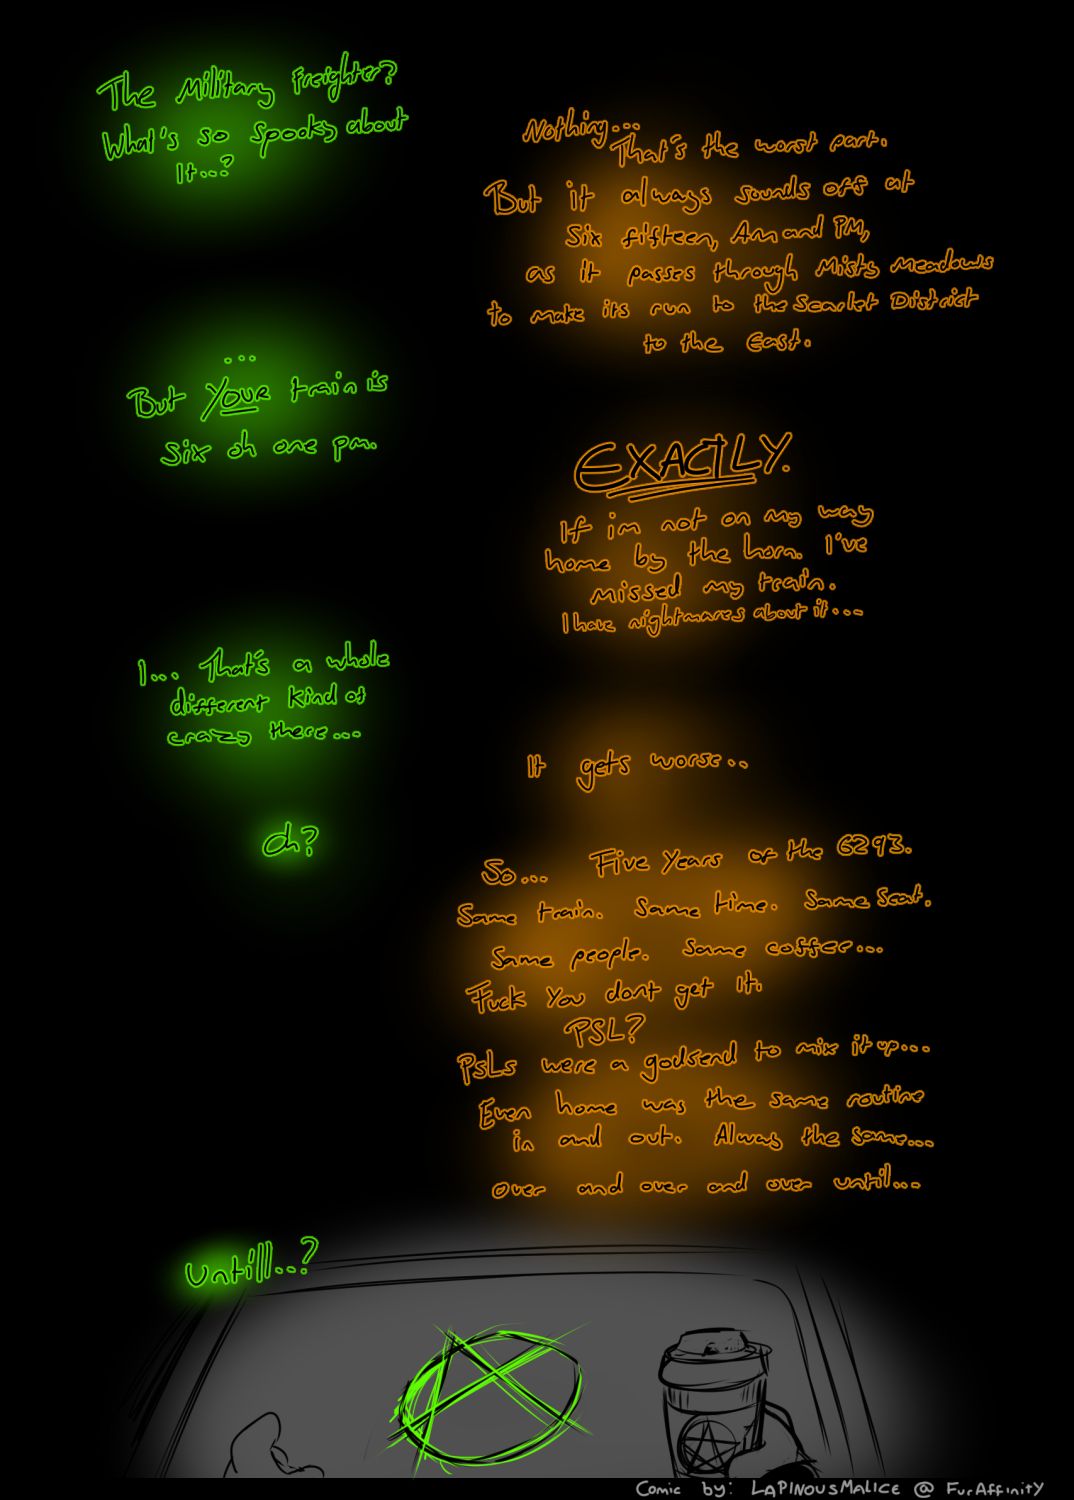 The Military Freighter?
What's so spooky about
it...?
Nothing...
That's the worst part.
But it always sounds off at
Six fifteen, AM and PM,
as it passes through Misty Meadows
to make its run to the Scarlet District
to the East.
...
But YOUR train is
six oh one pm.
EXACTLY.
If im not on my way
home by the horn. I've
missed my train.
I have nightmares about it...
I... That's a whole
different kind of
crazy there...
It gets worse..
Oh?
So... Five Years of the 6293.
Same train. Same time. Same Seat.
Same people. Same coffee...
Fuck You dont get it.
PSL?
PSLs were a godsend to mix it up...
Even home was the same routine
in and out. Always the same...
over and over and over until...
Untill..?
Comic by: LAPINOUSMALICE @ FurAffinity